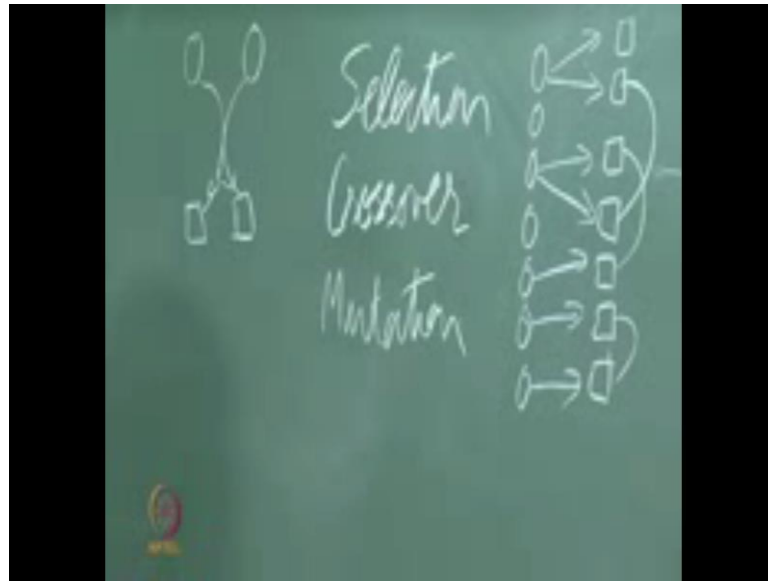 Selection
Crossover
Mutation